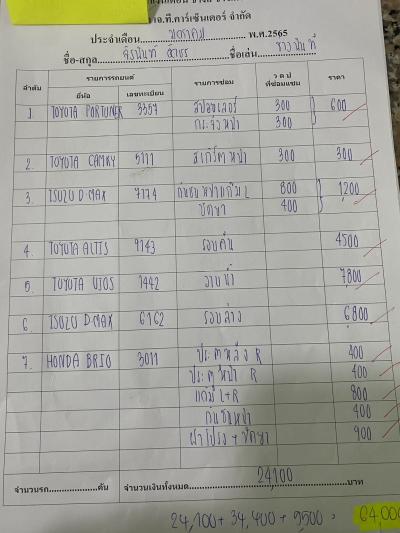 จ.ที.คาร์เซ็นเตอร์ จำกัด
ประจำเดือน มกราคม พ.ศ.2565
ชื่อ-สกุล ชื่อเล่น
ลำดับ รายการรถยนต์ รายการซ่อม ว ด ป ที่ซ่อมแซม ราคา
ยี่ห้อ เลขทะเบียน
1 TOYOTA FORTUNER 3357 สปอยเลอร์ 300 600
กระจังหน้า 300
2. TOYOTA CAMRY 5111 สเกิร์ตหน้า 300 300
3. ISUZU D-MAX 7174 กันชนหน้าแก้ม L 800 1,200
400
4. TOYOTA ALTIS 9143 รอบคัน 4500
5. TOYOTA VIOS 7442 7,800
6. ISUZU D-MAX 6162 รอบล่าง 6,800
7. HONDA BRIO 3011 ประตูหลัง R 400
ประตูหน้า R 400
แก้ม L+R 800
กันชนหน้า 400
ฝาโปรง + 900
จำนวนรถ คัน จำนวนเงินทั้งหมด 24,100 บาท
24,100 + 34,400 + 5,500 = 64,000